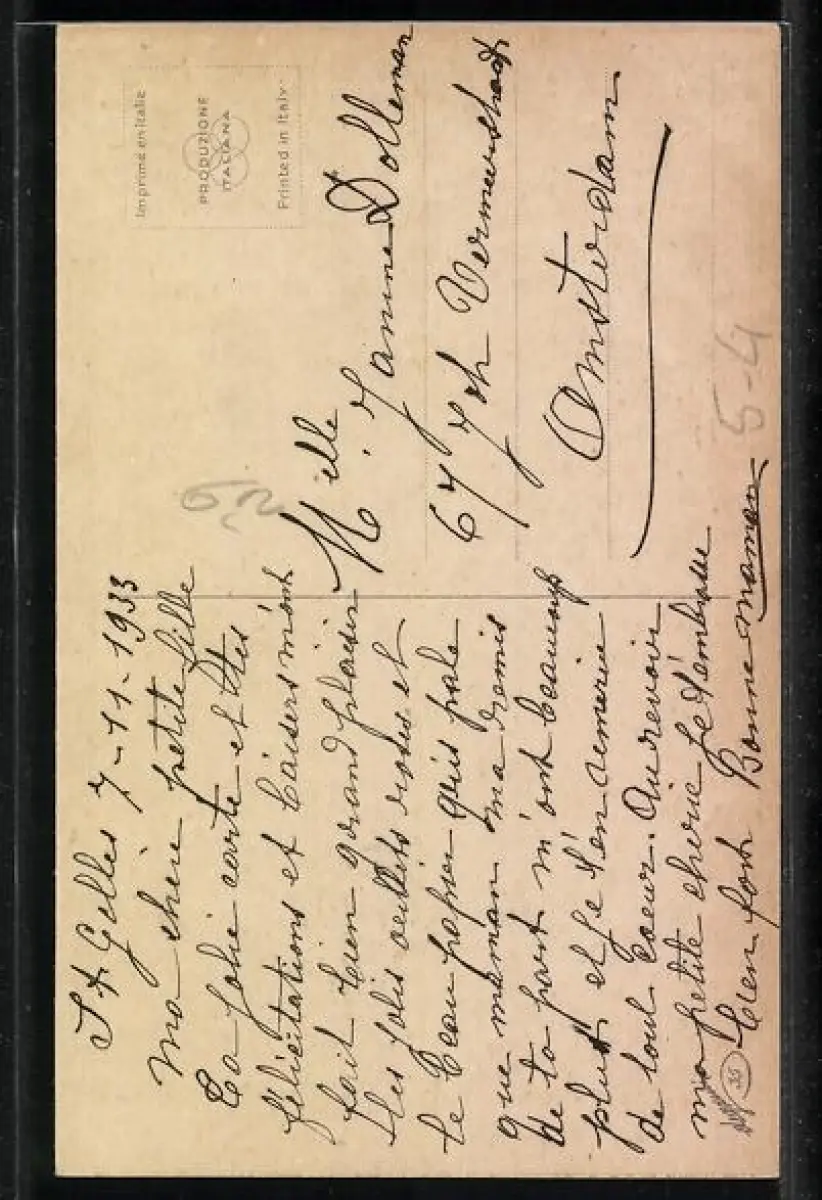 St Gilles 7-11-1933
Ma chère petite fille
Ta jolie carte et tes
félicitations et baisers m'ont
fait bien grand plaisir
Les jolis oeillets roses et
le beau papier gris pale
que maman m'a remis
de ta part m'ont beaucoup
plut et je t'en remerie
de tout coeur. Au revoir
ma petite cherie je t'embrasse
bien fort Bonne maman
Imprimé en Italie
PRODUZIONE
ITALIANA
Printed in Italy
Melle. Janine Dolleman
67 Joh Vermeerstraat
Amsterdam
5-4
35